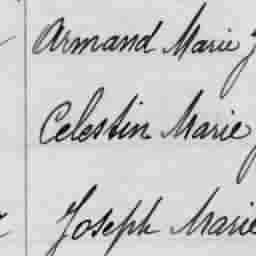 Armand Marie J
Celestin Marie
Joseph Marie